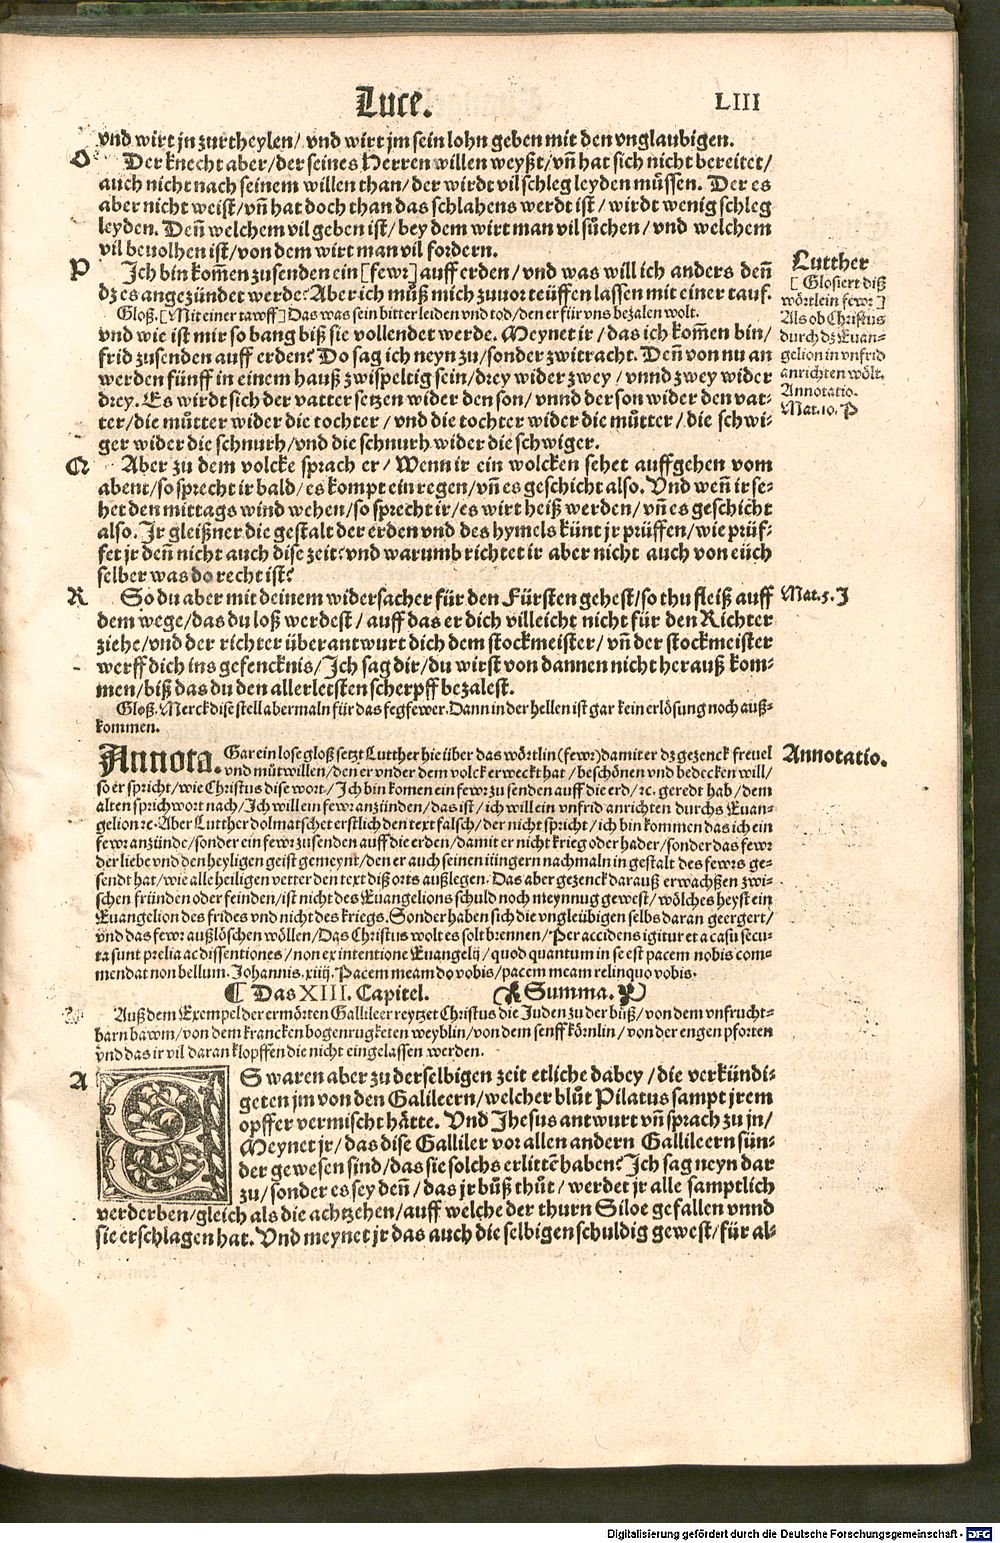 Luce. LIII
vnd wirt jn zurtheylen/ vnd wirt jm sein lohn geben mit den vnglaubigen.
O Der knecht aber/der seines Herren willen weyßt/vñ hat sich nicht bereitet/
auch nicht nach seinem willen than/ der wirdt vil schleg leyden müssen. Der es
aber nicht weist/vñ hat doch than das schlahens werdt ist/ wirdt wenig schleg
leyden. Deñ welchem vil geben ist/ bey dem wirt man vil sůchen/ vnd welchem
vil beuolhen ist/von dem wirt man vil fordern.
P Ich bin kom̃en zusenden ein [fewr] auff erden/ vnd was will ich anders deñ
dz es angezündet werde? Aber ich můß mich zuuor teüffen lassen mit einer tauf.
Gloß. [Mit einer tawff] Das was sein bitter leiden vnd tod/den er für vns bezalen wolt.
vnd wie ist mir so bang biß sie vollendet werde. Meynet ir/das ich kom̃en bin/
frid zusenden auff erden? Do sag ich neyn zu/sonder zwitracht. Deñ von nu an
werden fünff in einem hauß zwispeltig sein/drey wider zwey/ vnnd zwey wider
drey. Es wirdt sich der vatter setzen wider den son/ vnnd der son wider den vat-
ter/die můtter wider die tochter/ vnd die tochter wider die můtter/ die schwi-
ger wider die schnurh/vnd die schnurh wider die schwiger.
Q Aber zu dem volcke sprach er/ Wenn ir ein wolcken sehet auffgehen vom
abent/so sprecht ir bald/es kompt ein regen/vñ es geschicht also. Vnd weñ ir se-
het den mittags wind wehen/so sprecht ir/es wirt heiß werden/vñ es geschicht
also. Jr gleißner die gestalt der erden vnd des hymels künt jr prüffen/wie prüf-
fet jr deñ nicht auch dise zeit? vnd warumb richtet ir aber nicht auch von eüch
selber was do recht ist?
R So du aber mit deinem widersacher für den Fürsten gehest/so thu fleiß auff
dem wege/das du loß werdest/ auff das er dich villeicht nicht für den Richter
ziehe/vnd der richter überantwurt dich dem stockmeister/ vñ der stockmeister
werff dich ins gefencknis/Ich sag dir/du wirst von dannen nicht herauß kom-
men/biß das du den allerletsten scherpff bezalest.
Gloß. Merck dise stell abermaln für das fegfewer. Dann in der hellen ist gar kein erlösung noch auß-
kommen.
Luther
[Glosiert diß
wörtlein fewr]
Als ob Christus
durch dz Euan-
gelion in vnfrid
anrichten wölt.
Annotatio.
Mat. 10. P
Mat. 5. J
Annotatio.
Annota. Gar ein lose gloß setzt Lutther hie über das wörtlin (fewr) damit er dz gezenck freuel
vnd můtwillen/den er vnder dem volck erweckt hat/beschönen vnd bedecken will/
so er spricht/wie Christus dise wort/Ich bin komen ein fewr zu senden auff die erd/ꝛc. geredt hab/dem
alten sprichwort nach/Ich will ein fewr anzünden/das ist/ich will ein vnfrid anrichten durchs Euan-
gelion ꝛc. Aber Lutther dolmatschet erstlich den text falsch/der nicht spricht/ich bin kommen das ich ein
fewr anzünde/sonder ein fewr zusenden auff die erden/damit er nicht krieg oder hader/sonder das fewr
der liebe vnd den heyligen geist gemeynt/den er auch seinen iüngern nachmaln in gestalt des fewrs ge-
sendt hat/wie alle heiligen vetter den text diß orts außlegen. Das aber gezenck darauß erwachßen zwi-
schen fründen oder feinden/ist nicht des Euangelions schuld noch meynnug gewest/wölches heyst ein
Euangelion des frides vnd nicht des kriegs. Sonder haben sich die vngleübigen selbs daran geergert/
vnd das fewr außlöschen wöllen/Das Christus wolt es solt brennen/Per accidens igitur et a casu secu-
ta sunt prelia ac dissentiones/non ex intentione Euangelij/quod quantum in se est pacem nobis com-
mendat non bellum. Johannis. xiiij. Pacem meam do vobis/pacem meam relinquo vobis.
Das XIII. Capitel. Summa.
Auß dem Exempel der ermörten Gallileer reytzet Christus die Juden zu der bůß/von dem vnfrucht-
barn bawm/von dem krancken bogenrugketen weyblin/von dem senff körnlin/von der engen pforten
vnd das ir vil daran klopffen die nicht eingelassen werden.
A ES waren aber zu derselbigen zeit etliche dabey/die verkündi-
geten jm von den Galileern/welcher blůt Pilatus sampt jrem
opffer vermischt hätte. Vnd Jhesus antwurt vñ sprach zu jn/
Meynet jr/das dise Galliler vor allen andern Gallileern sün-
der gewesen sind/das sie solchs erlittẽ haben? Ich sag neyn dar
zu/sonder es sey deñ/das jr bůß thůt/werdet jr alle samptlich
verderben/gleich als die achtzehen/auff welche der thurn Siloe gefallen vnnd
sie erschlagen hat. Vnd meynet jr das auch die selbigen schuldig gewest/für al-
Digitalisierung gefördert durch die Deutsche Forschungsgemeinschaft - DFG